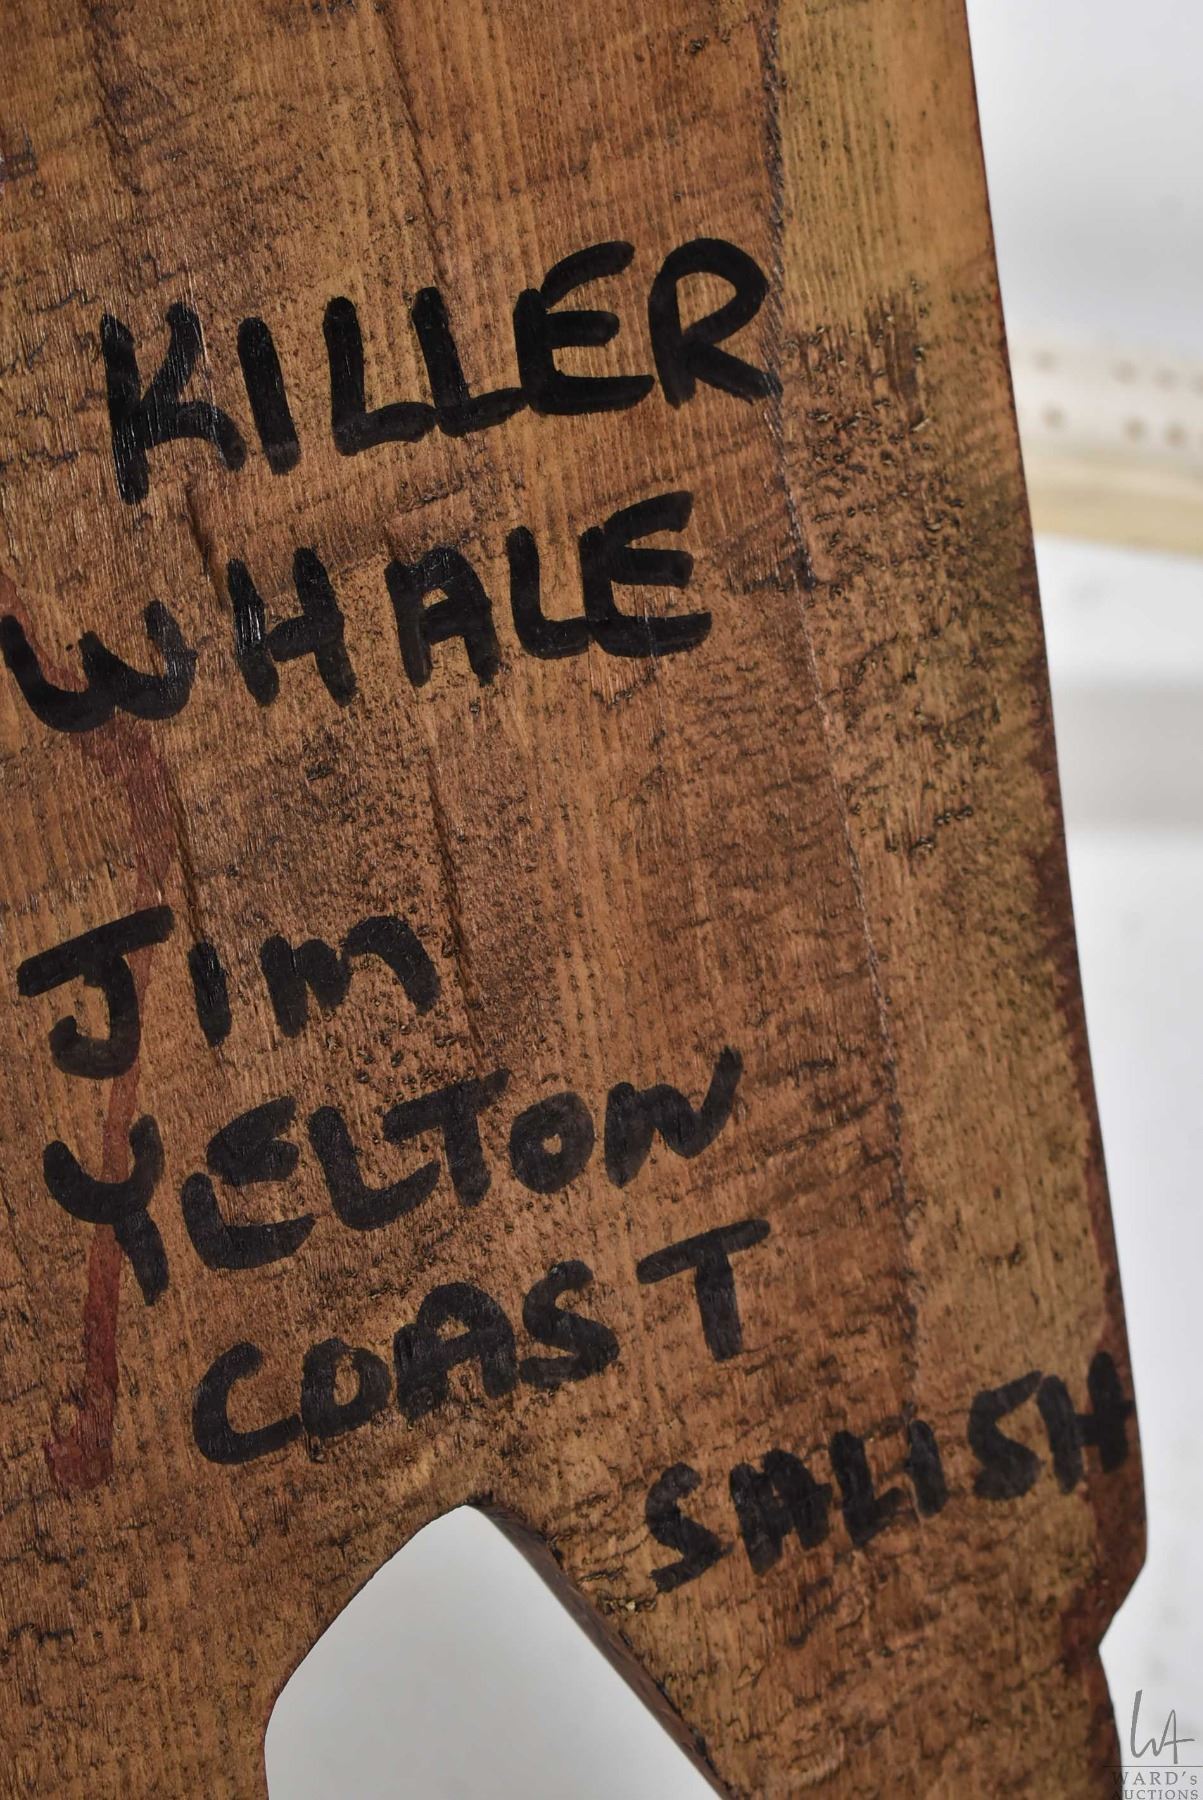 KILLER
WHALE
JIM
YELTON
COAST
SALISH
WA
WARD's
AUCTIONS